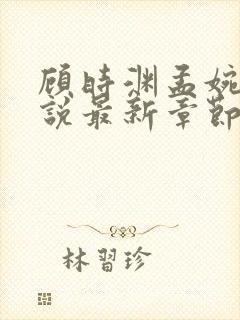 顾時渊孟婉
說最新章節
林習珍